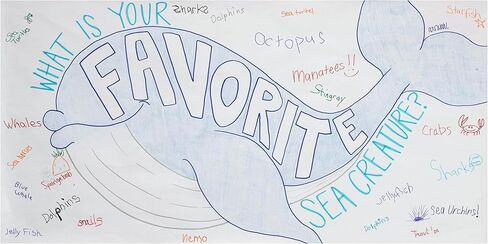 WHAT IS YOUR
FAVORITE
SEA CREATURE?
Sharks
Dolphins
Sea turtel
Starfish
Octopus
Manatees!!
Stingray
Whales
Crabs
Sea horses
Spongebob
Sharks
Blue
Whale
Dolphins
snails
Jellyfish
Sea Urchins!
Jelly Fish
nemo
Dolphins